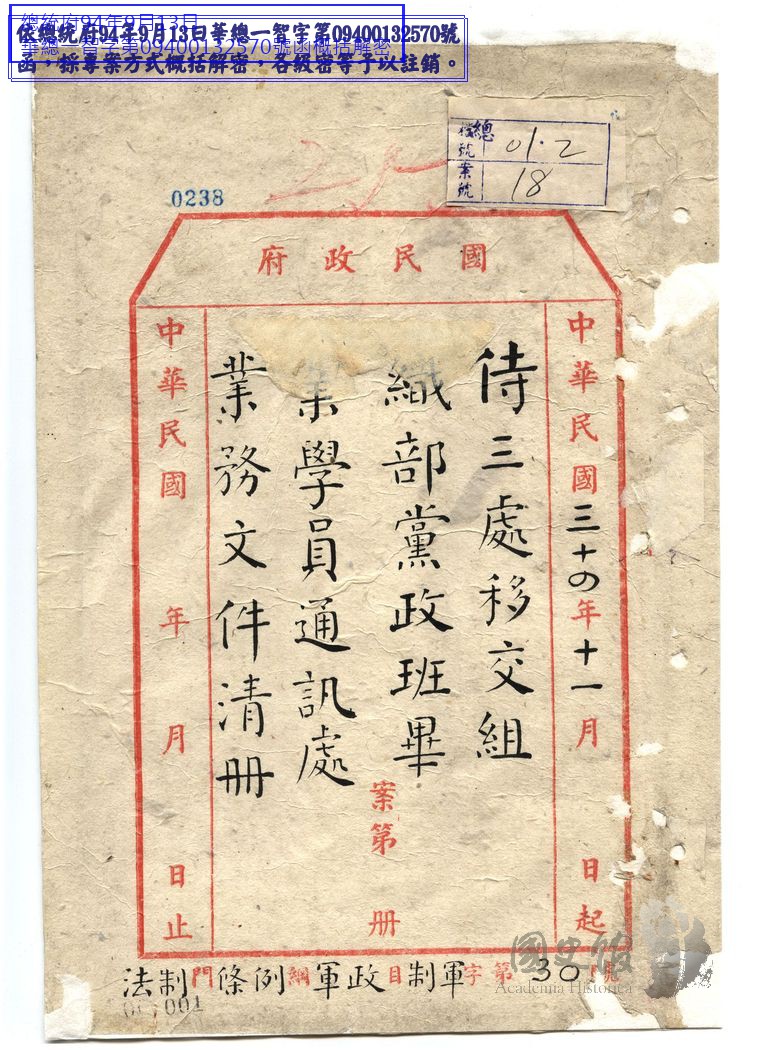 總統府94年9月13日
華總一智字第09400132570號函概括解密
依總統府94年9月13日華總一智字第09400132570號
函，採專案方式概括解密，各級密等予以註銷。
總
檔號 01.2
案號 18
0238
國民政府
中華民國三十四年十一月 日起
侍三處移交組
織部黨政班畢
業學員通訊處
業務文件清冊
案第 冊
中華民國 年 月 日止
法制門條例綱軍政目制軍字第30號
001001
國史館
Academia Historica